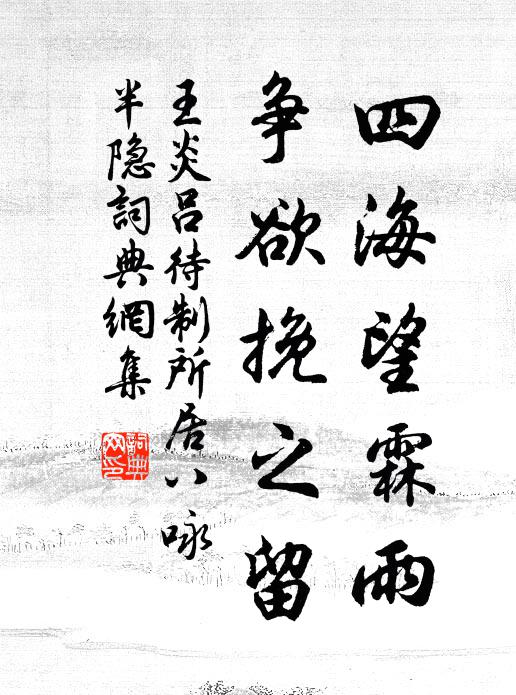 四海望霖雨
争欲挽之留
王炎吕待制所居八咏
半隐詞典網集
詞典網印